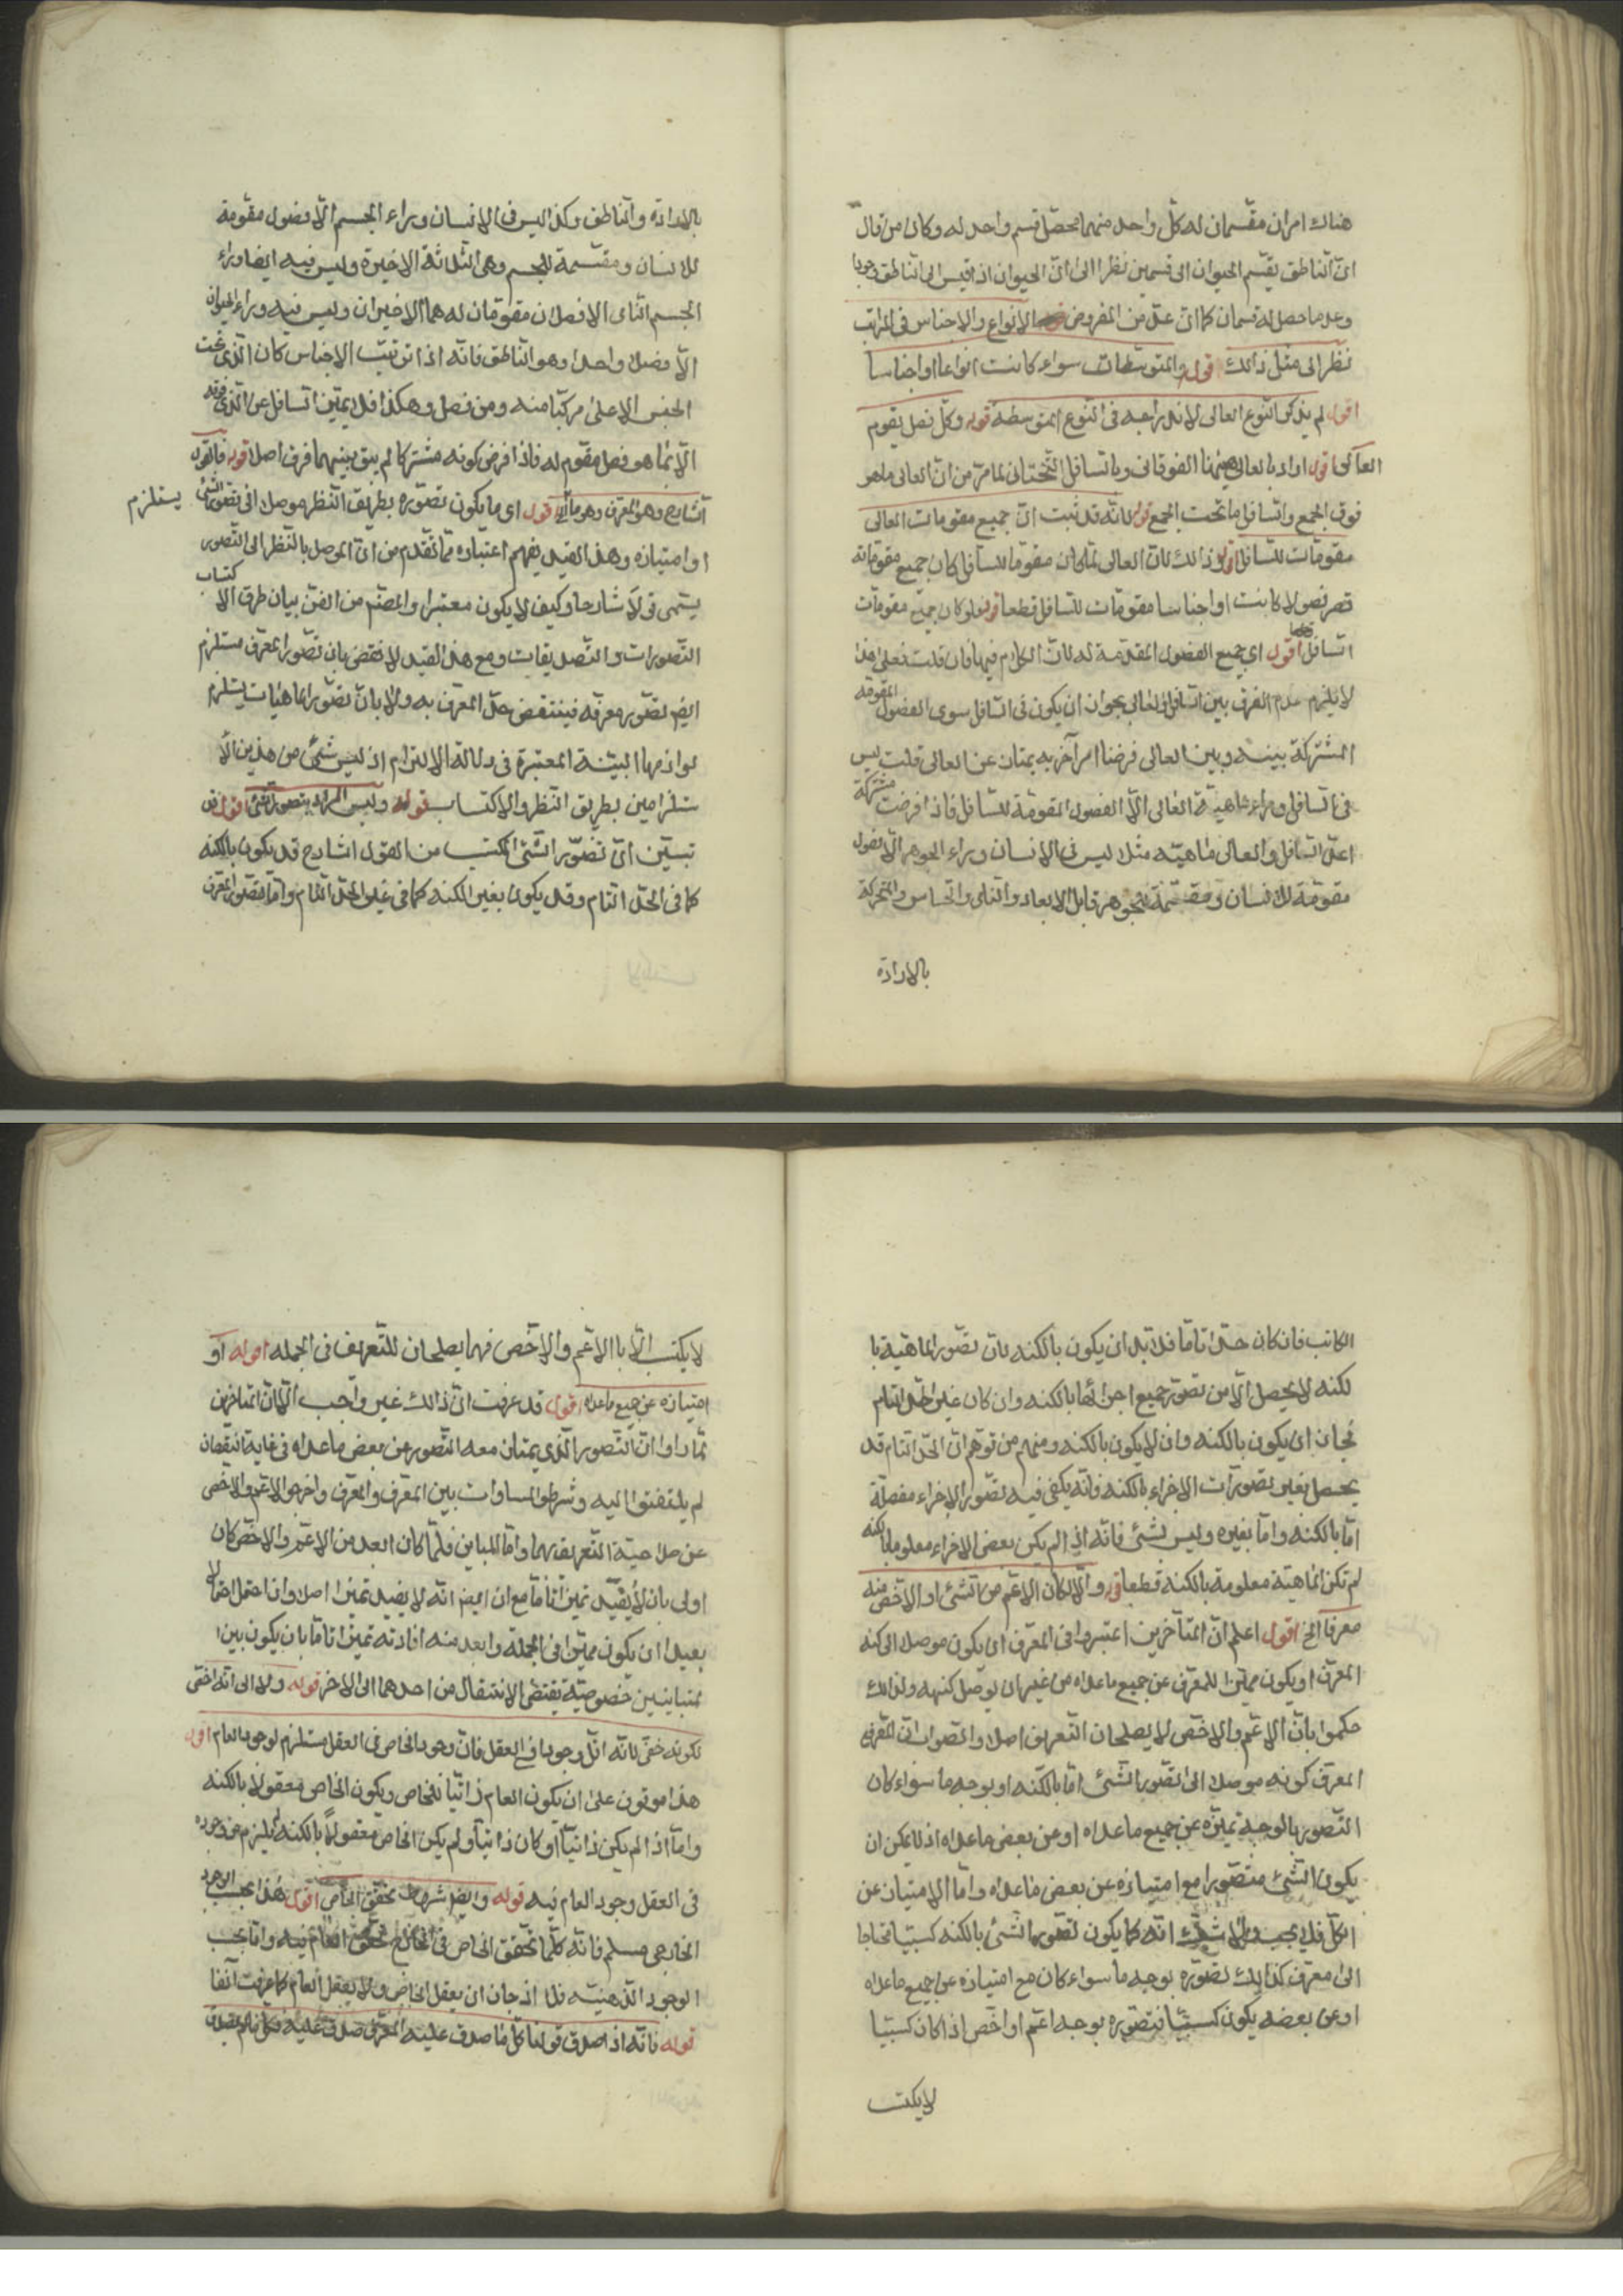 هناك امران مقسمان له كلّ واحد منهما محصّل قسم واحد له وكان من قال
انّ الناطق يقسّم الحيوان الى قسمين نظر الى انّ الحيوان اذا قيس الى الناطق وجودا
وعدما حصل له قسمان كما انّ عدّ من المفروض الانواع والاجناس فى المراتب
نظر الى مثل ذالك قوله والمتوسّطات سواء كانت انواعا او اجناسا
اقول لم يذكر النوع العالى لاندراجه فى النوع المتوسطة قوله وكلّ فصل يقوم
العالى اقول اراد بالعالى ههنا الفوقانى وبالسافل التحتانى لما مرّ من انّ العالى ما هو
فوق الجمع والسافل ما تحت الجمع قوله لانّه قد ثبت انّ جميع مقومات العالى
مقومات للسافل اقول وذالك لانّ العالى لمّا كان مقوما للسافل كان جميع مقوماته
فصولا كانت او اجناسا مقومات للسافل قطعا قوله ولو كان جميع مقومات
السافل اقول اى جميع الفصول المقومة له لانّ الكلام فيها فان قلت فعلى هذا
لا يلزم عدم الفرق بين السافل والعالى بجواز ان يكون فى السافل سوى الفصول المقومة
المشتركة بينه وبين العالى فرضا امر آخر به يمتاز عن العالى قلت ليس
فى السافل وراء ماهية العالى الّا الفصول المقومة للسافل فاذا فرضت مشتركة
اتّحد السافل والعالى ماهيّة مثلا ليس فى الانسان وراء الجوهر الّا فصول
مقومة للانسان ومقسّمة للجوهر قابل الابعاد والنامى والحساس والمتحركة
بالارادة
بالارادة والناطق وكذا ليس فى الانسان وراء الجسم الّا فصول مقومة
للانسان ومقسّمة للجسم وهى الثلاثة الاخيرة وليس فيه ايضا وراء
الجسم النامى الا فصلان مقومان له هما الاخيران وليس فيه وراء الحيوان
الّا فصلا واحدا وهو الناطق فانّه اذا ترتب الاجناس كان الذى تحت
الجنس الاعلى مركبا منه ومن فصل وهكذا فلا يميّز السافل عن الذى فوقه
الّا بما هو فصل مقوم له فاذا فرض كونه مشتركا لم يبق بينهما فرق اصلا قوله فالقول
الشارح وهو المعرف وهو ما اقول اى ما يكون تصوّره بطريق النظر موصلا الى تصور الشئ
يستلزم
او امتيازه وهذا القيد يفهم اعتباره ممّا تقدم من انّ الموصل بالنظر الى التصور
يسمى قولا شارحا وكيف لا يكون معتبرا والمقصّم من الفنّ بيان طرق الا كتساب
التصورات والتصديقات ومع هذا القيد لا نقض بان تصور المعرف مستلزم
ايضا تصوّر معرفه فينتقض حدّ المعرف به ولا بانّ تصوّر الماهيّات يستلزم
لوازمها البيّنة المعتبرة فى دلالة الالتزام اذ ليس شئ من هذين الا
ستلزامين بطريق النظر والاكتساب قوله وليس المراد بتصور الشئ اقول قد
تبيّن انّ تصوّر الشئ المكتسب من القول الشارح قد يكون بالكنه
كما فى الحدّ التام وقد يكون بغير الكنه كما فى غير الحدّ التام وامّا تصوّر المعرف
الكاسب فان كان حدّا تامّا فلا بدّ ان يكون بالكنه لانّ تصوّر الماهيّة با
لكنه لا يحصل الّا من تصوّر جميع اجزائها بالكنه وان كان غير الحدّ التام
فجاز ان يكون بالكنه وان لا يكون بالكنه ومنهم من توهّم انّ الحدّ التام قد
يحصل بغير تصوّرات الاجزاء بالكنه فانّه يكفى فيه تصوّر الاجزاء مفصلة
امّا بالكنه وامّا بغيره وليس بشئ فانّه اذا لم يكن بعض الاجزاء معلوما بالكنه
لم تكن الماهيّة معلومة بالكنه قطعا قوله والّا لكان الاعم من الشئ او الاخص منه
معرفا الخ اقول اعلم انّ المتاخرين اعتبروا فى المعرف ان يكون موصلا الى كنه
المعرف او يكون مميّزا للمعرف عن جميع ما عداه من غير ان يوصل كنهه ولذالك
حكموا بانّ الاعم والاخص لا يصلحان التعريف اصلا والصواب انّ المعتبر فى
المعرف كونه موصلا الى تصوّر الشئ امّا بالكنه او بوجه ما سواء كان
التصور بالوجه تميّزه عن جميع ما عداه او عن بعض ما عداه اذ لا يمكن ان
يكون الشئ متصوّرا مع امتيازه عن بعض ما عداه وامّا الامتياز عن
الكلّ فلا يجب ولا شك انّه كما يكون تصوّر الشئ بالكنه كسبيّا محتاجا
الى معرف كذالك تصوّره بوجه ما سواء كان مع امتيازه عن جميع ما عداه
او عن بعضه يكون كسبيّا فتصوّره بوجه اعم او اخص اذا كان كسبيّا
لا يكتسب
لا يكتسب الّا با الاعم والاخص فهما يصلحان للتعريف فى الجمله قوله او
امتيازه عن جميع ما عداه اقول قد عرفت انّ ذالك غير واجب الّا انّ المتاخرين
لمّا راوا انّ التصور الذى يمتاز معه المتصور عن بعض ما عداه فى غاية النقصان
لم يلتفتوا اليه وشرطوا المساوات بين المعرف والمعرف واخرجوا الاعم والاخص
عن صلاحيّة التعريف بهما وامّا المباين فلمّا كان ابعد من الاعم والاخص كان
اولى بان لا يفيد تميّزا تامّا مع ان ايضا انّه لا يفيد تميّزا اصلا وان احتمل احتمالا
بعيدا ان يكون مميّزا فى الجملة وابعد منه افادته تميّزا تامّا بان يكون بين ا
لمتباينين خصوصيّة يقتضى الانتقال من احدهما الى الاخر قوله ولا الى انّه اخفى
لكونه خفى لانّه اقلّ وجودا فى العقل فانّ وجود الخاص فى العقل مستلزم لوجود العام اقول
هذا موقوف على ان يكون العام ذاتيا للخاص ويكون الخاص معقولا بالكنه
وامّا اذا لم يكن ذاتيّا او كان ذاتيّا ولم يكن الخاص معقولا بالكنه لم يلزم من وجوده
فى العقل وجود العام فيه قوله وايضا شروط تحقق الخاص اقول هذا بحسب الوجود
الخارجى مسلم فانّه كلّما تحقق الخاص فى الخارج تحقق العام فيه وامّا بحسب
الوجود الذهنيّة فلا اذ جاز ان يعقل الخاص ولا يعقل العام كما عرفت آنفا
قوله فانّه اذا صدق قولنا كلّ ما صدق عليه المعرف صدق عليه